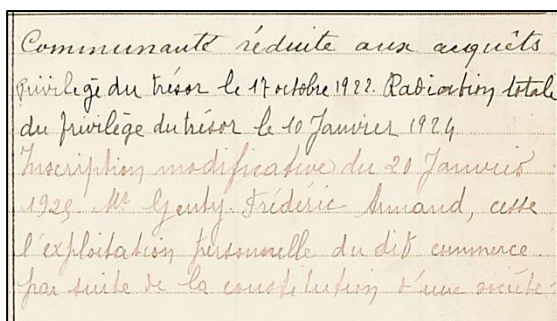 Communauté réduite aux acquêts
privilège du trésor le 17 octobre 1922. Radiation totale
du privilège du trésor le 10 Janvier 1924
Inscription modificative du 20 Janvier
1925 Mr Genty Frédéric Armand, cesse
l'exploitation personnelle du dit commerce
par suite de la constitution d'une société